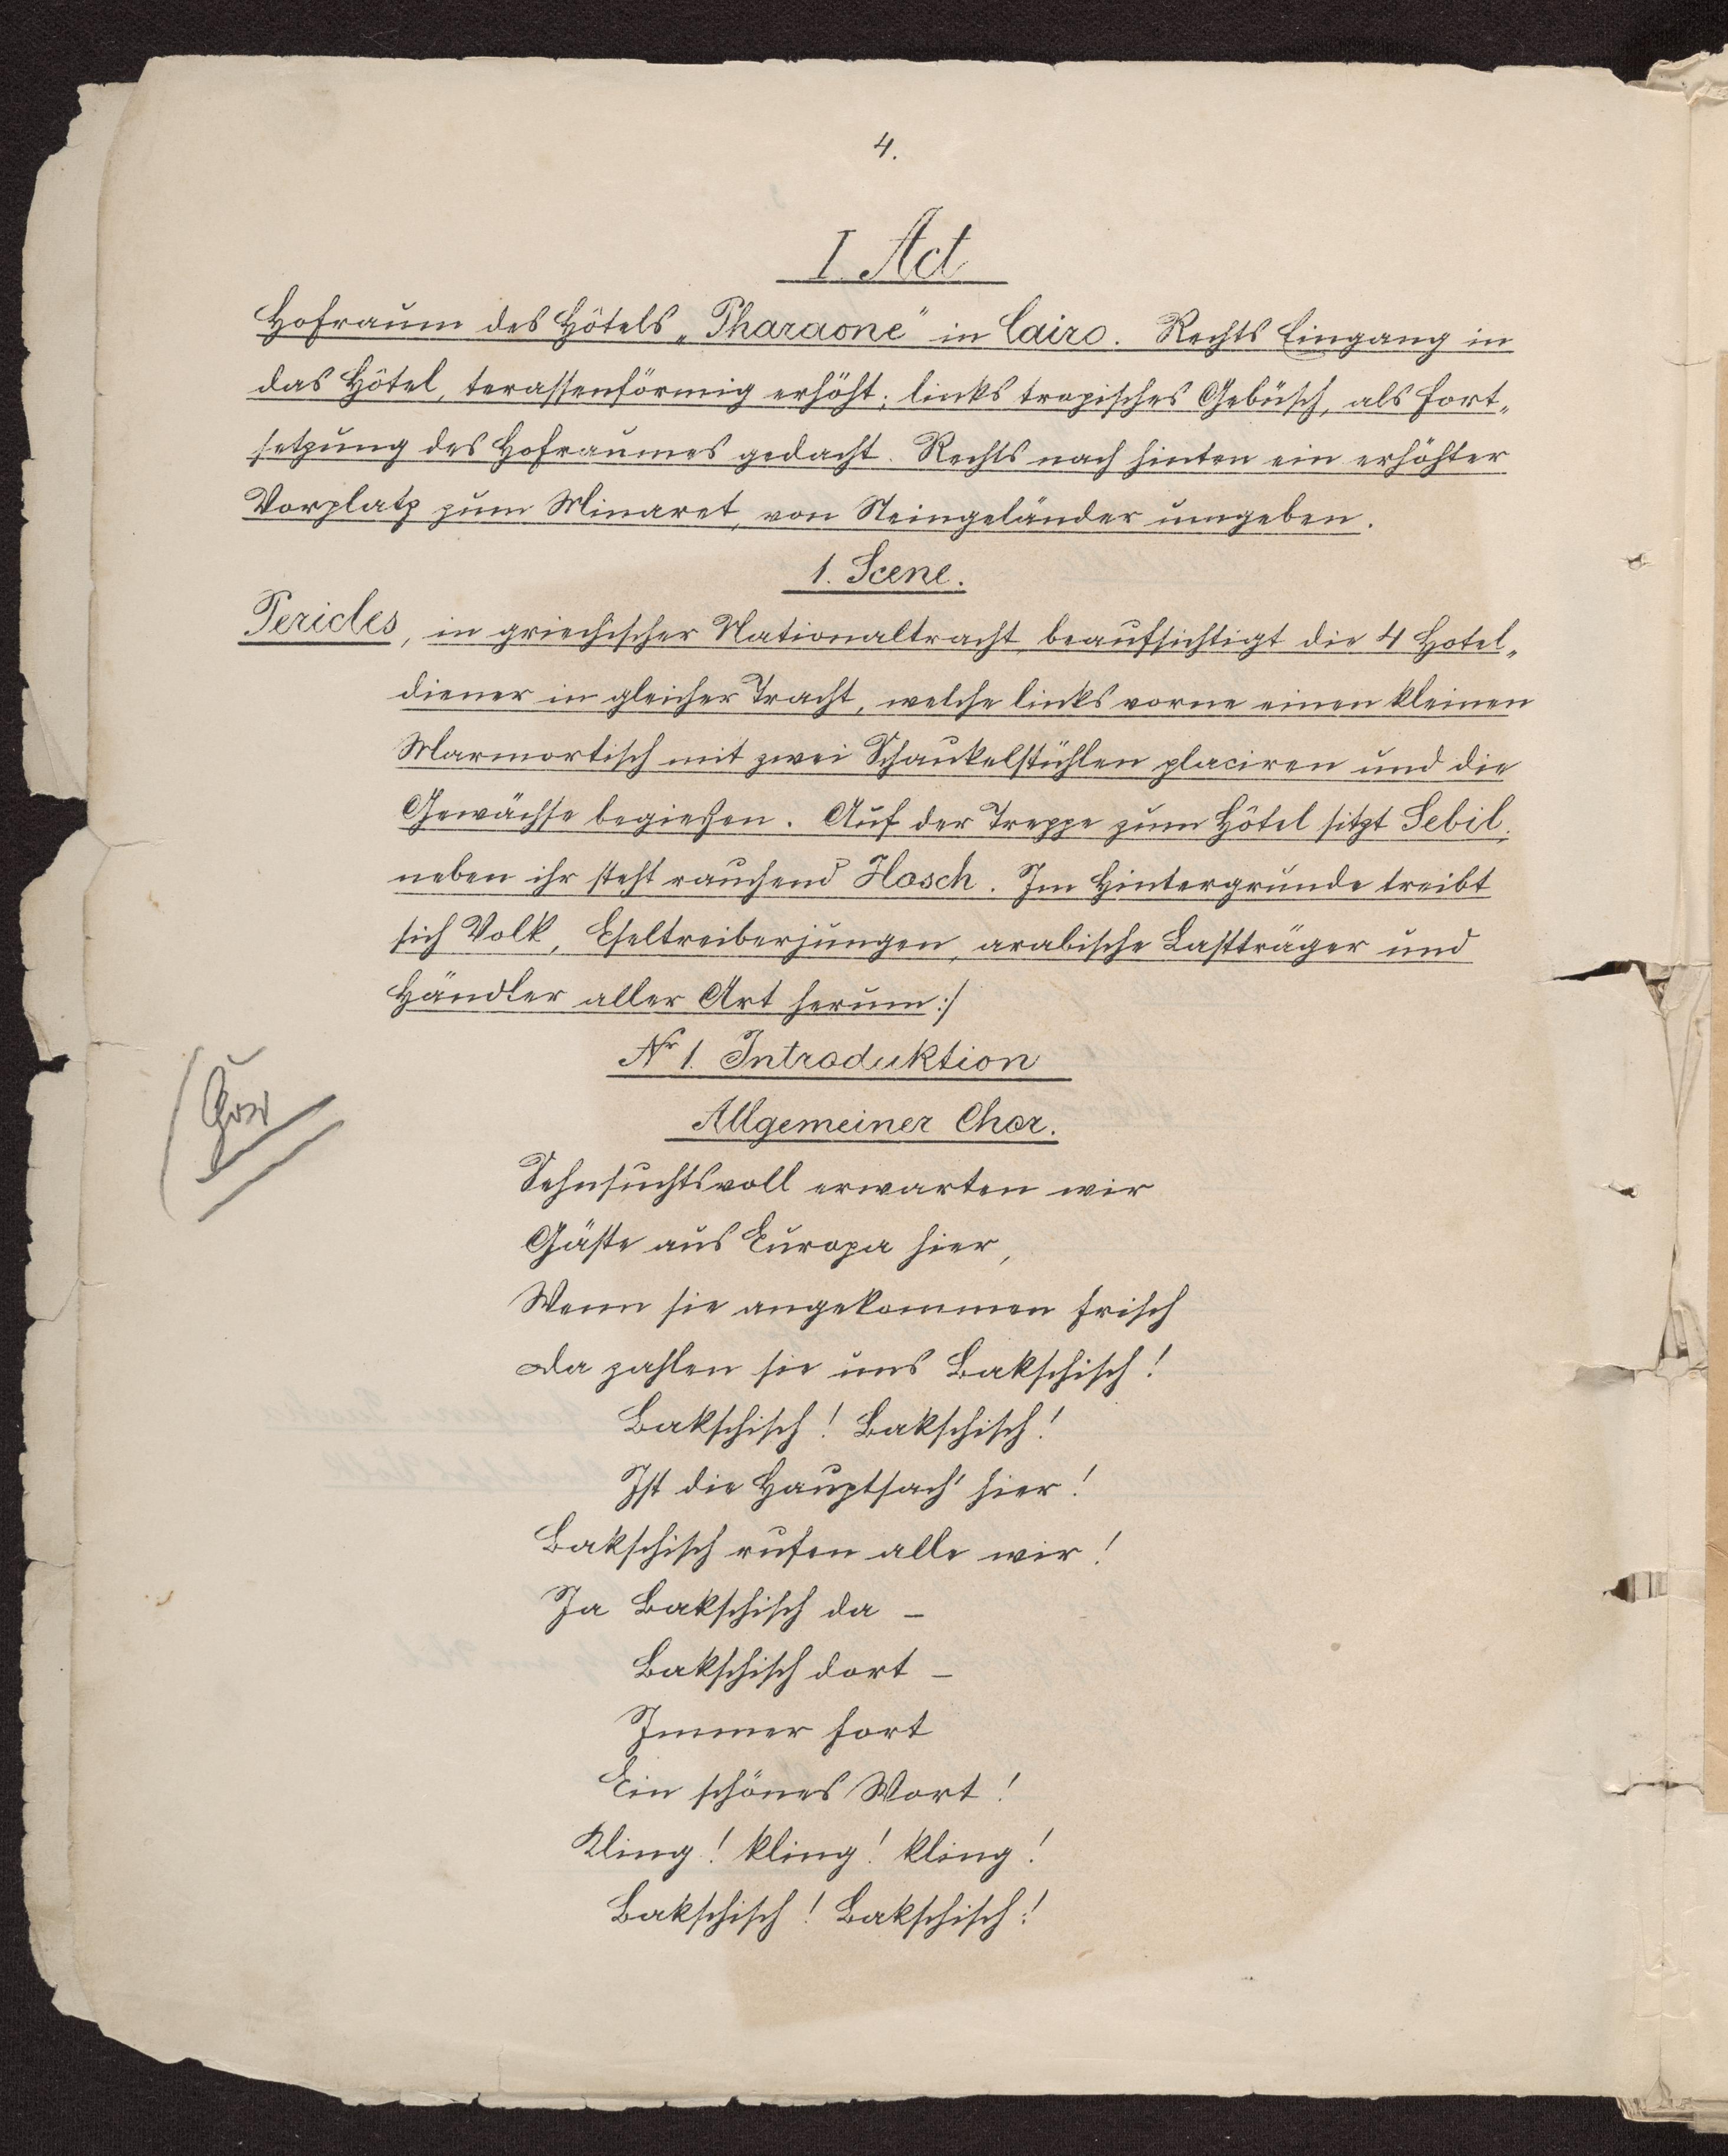 4.
I. Act
Hofraum des Hôtels „Pharaone“ in Cairo. Rechts Eingang in
das Hôtel, terassenförmig erhöht; links tropisches Gebüsch, als Fort„
setzung des Hofraumes gedacht. Rechts nach hinten ein erhöhter
Vorplatz zum Minaret, von Steingeländer umgeben.
1. Scene.
Pericles, in griechischer Nationaltracht, beaufsichtigt die 4 Hotel„
diener in gleicher Tracht, welche links vorne einen kleinen
Marmortisch mit zwei Schaukelstühlen placiren und die
Gewächse begießen. Auf der Treppe zum Hôtel sitzt Sebil,
neben ihr steht rauchend Hosch. Im Hintergrunde treibt
sich Volk, Eseltreiberjungen, arabische Lastträger und
Händler aller Art herum :/
Nr 1. Introduktion
Allgemeiner Chor.
Sehnsuchtsvoll erwarten wir
Gäste aus Europa hier,
Wenn sie angekommen frisch
Da zahlen sie uns Bakschisch!
Bakschisch! Bakschisch!
Ist die Hauptsach' hier!
Bakschisch rufen alle wir!
Ja Bakschisch da –
Bakschisch dort –
Immer fort
Ein schönes Wort!
Kling! kling! kling!
Bakschisch! Bakschisch!